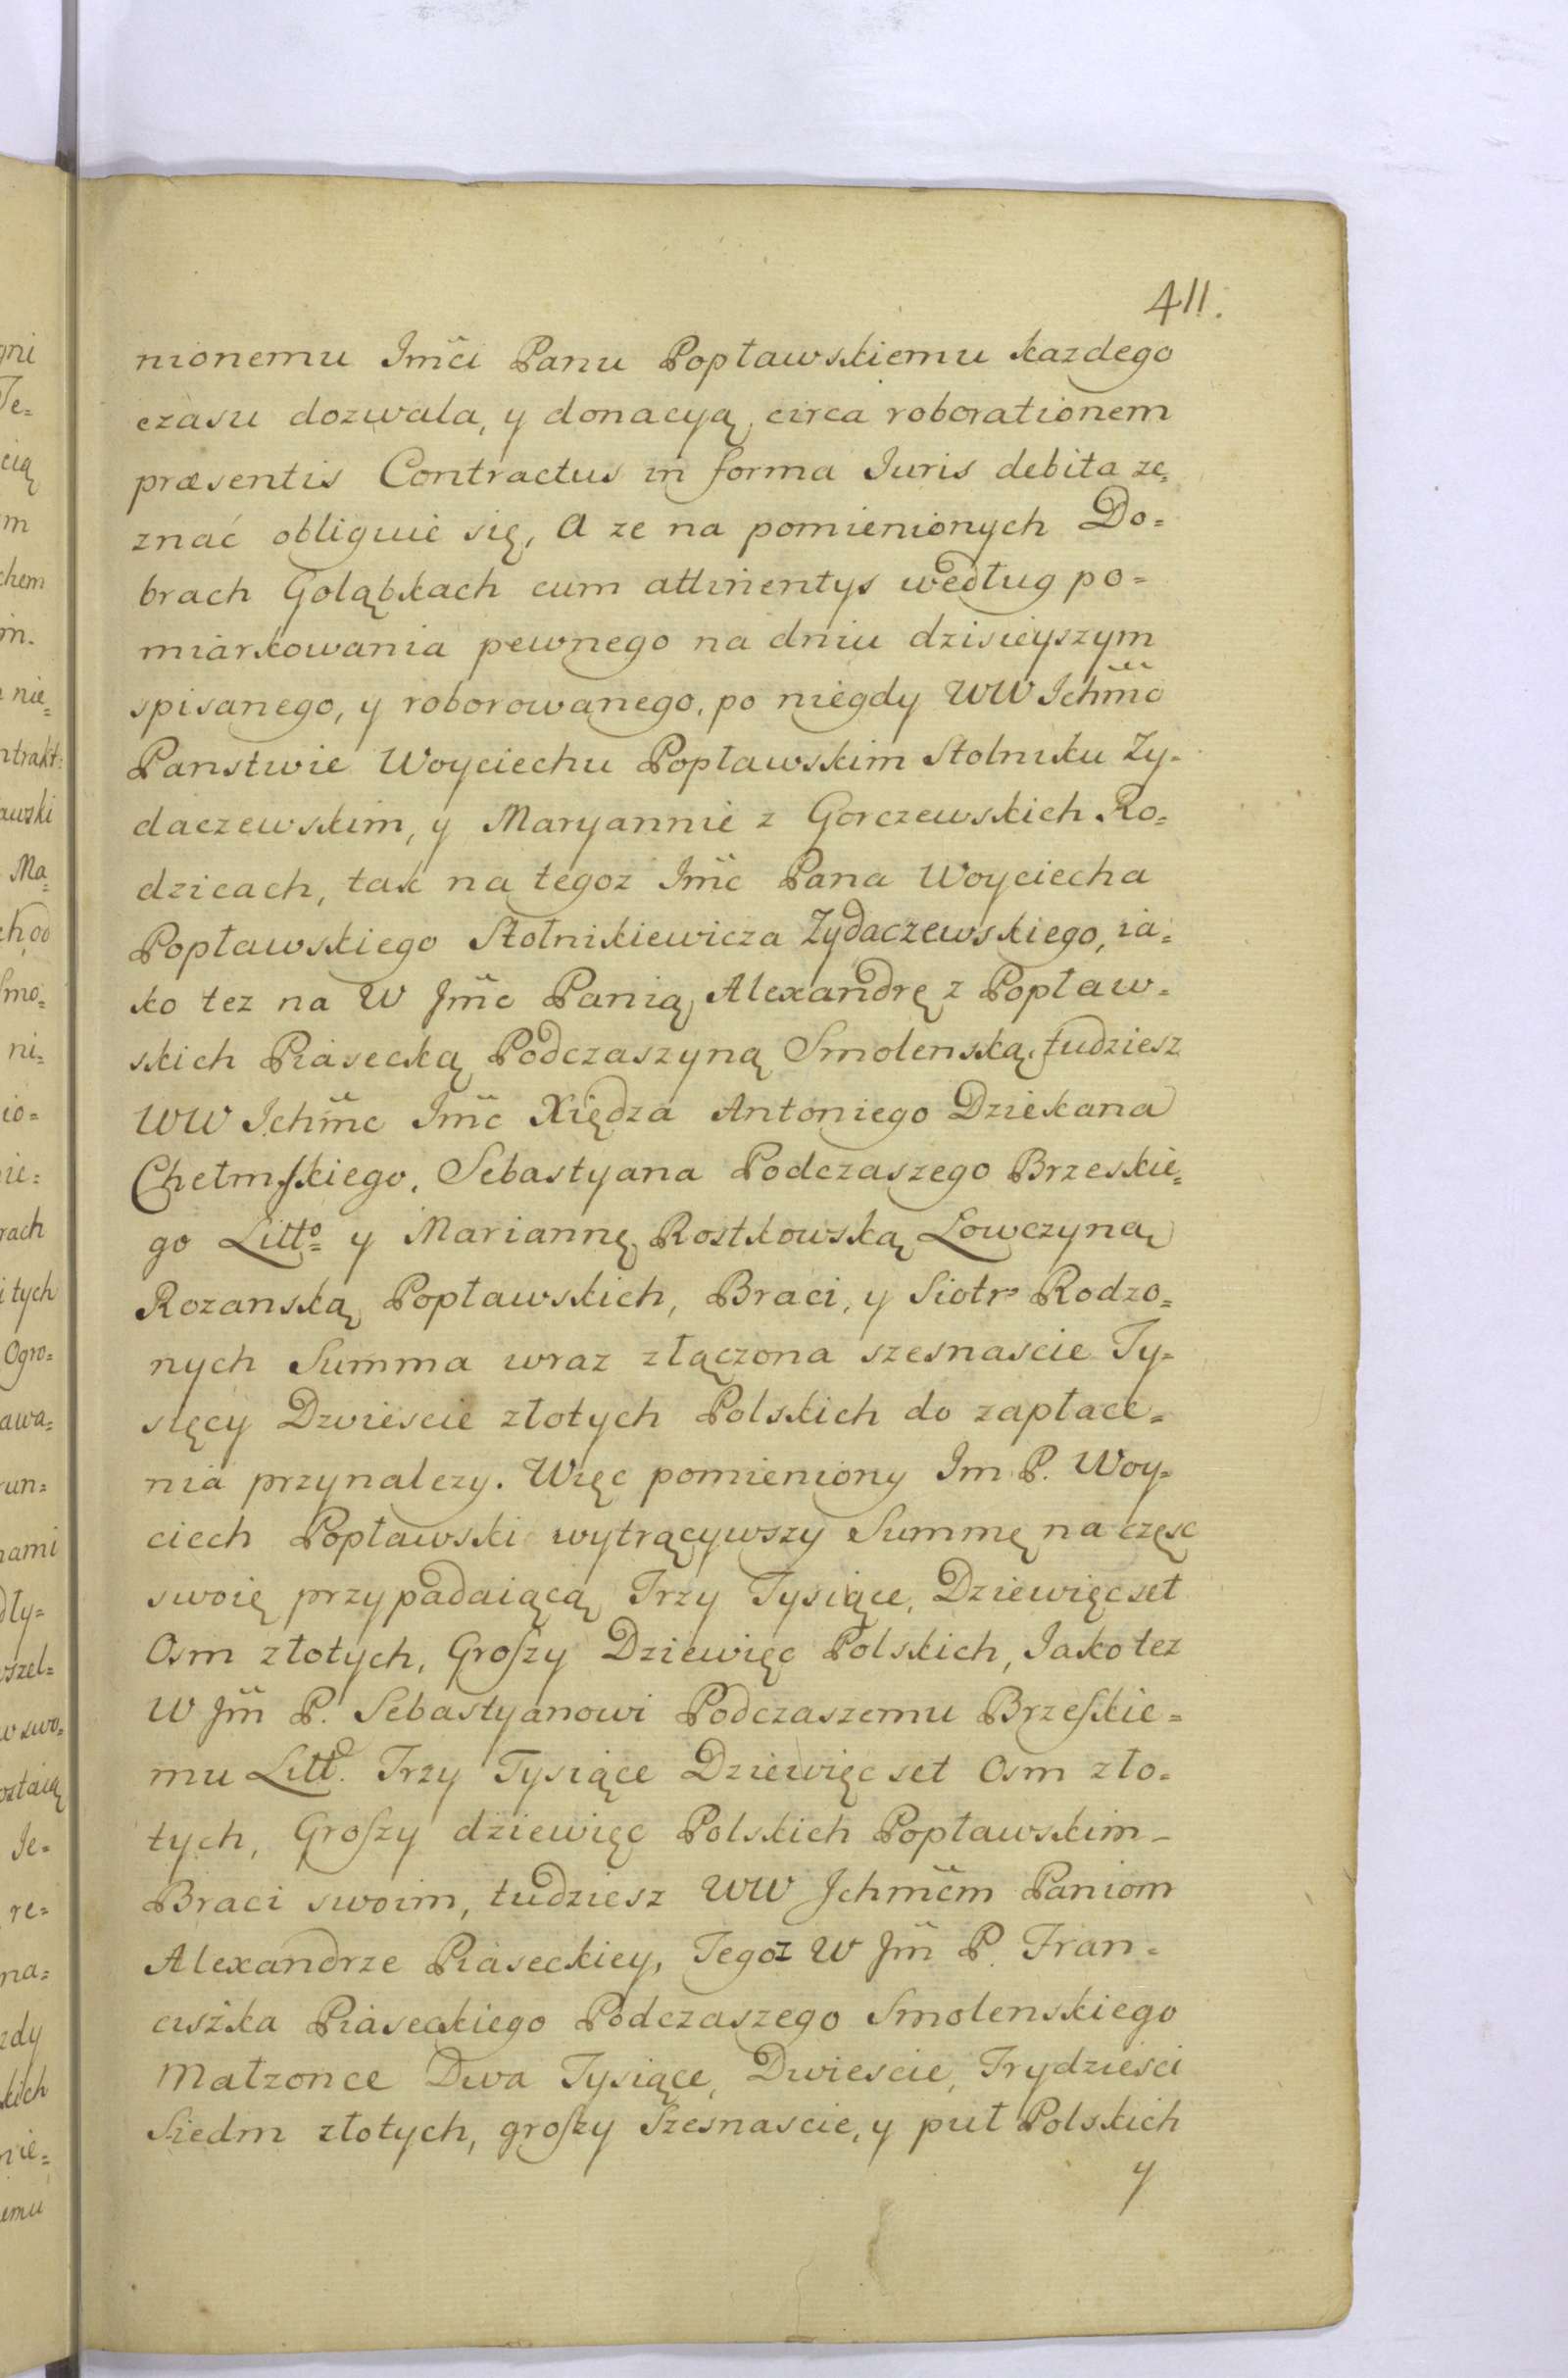 411.
nionemu Imći Panu Popławskiemu kazdego
czasu dozwala, y donacyą circa roborationem
præsentis Contractus in forma Iuris debita ze=
znać obliguie się, A ze na pomienionych Do=
brach Gołąbkach cum attinentys według po=
miarkowania pewnego na dniu dzisieyszym
spisanego, y roborowanego, po niegdy WW Ichmć
Panstwie Woyciechu Popławskim Stolniku Zy=
daczewskim, y Maryannie z Gorczewskich Ro=
dzicach, tak na tegoz Imć Pana Woyciecha
Popławskiego Stolnikiewicza Zydaczewskiego, ia=
ko tez na W Jmć Panią Alexandrę z Popław=
skich Piasecką Podczaszyną Smolenską, tudziesz
WW Ichmć Imć Xiędza Antoniego Dziekana
Chełmskiego, Sebastyana Podczaszego Brzeskie=
go Litto= y Mariannę Rostkowską Łowczyną
Rozanską Popławskich, Braci, y Siotr Rodzo=
nych Summa wraz złączona szesnascie Ty=
sięcy Dzwiescie złotych Polskich do zapłace=
nia przynalezy. Więc pomieniony Im P. Woy=
ciech Popławski wytrącywszy Summę na częsc
swoię przypadaiącą Trzy Tysiące, Dziewięcset
Osm złotych, Groszy Dziewięc Polskich, Iako tez
W Jm P. Sebastyanowi Podczaszemu Brzeskie=
mu Litto. Trzy Tysiące Dziewięcset Osm zło=
tych, Groszy dziewięc Polskich Popławskim_
Braci swoim, tudziesz WW Jchmćm Paniom
Alexandrze Piaseckiey, Tegoz W Jm P. Fran=
ciszka Piaseckiego Podczaszego Smolenskiego
Małzonce Dwa Tysiące, Dwiescie, Trydziesci
Siedm złotych, groszy Szesnascie, y puł Polskich
y